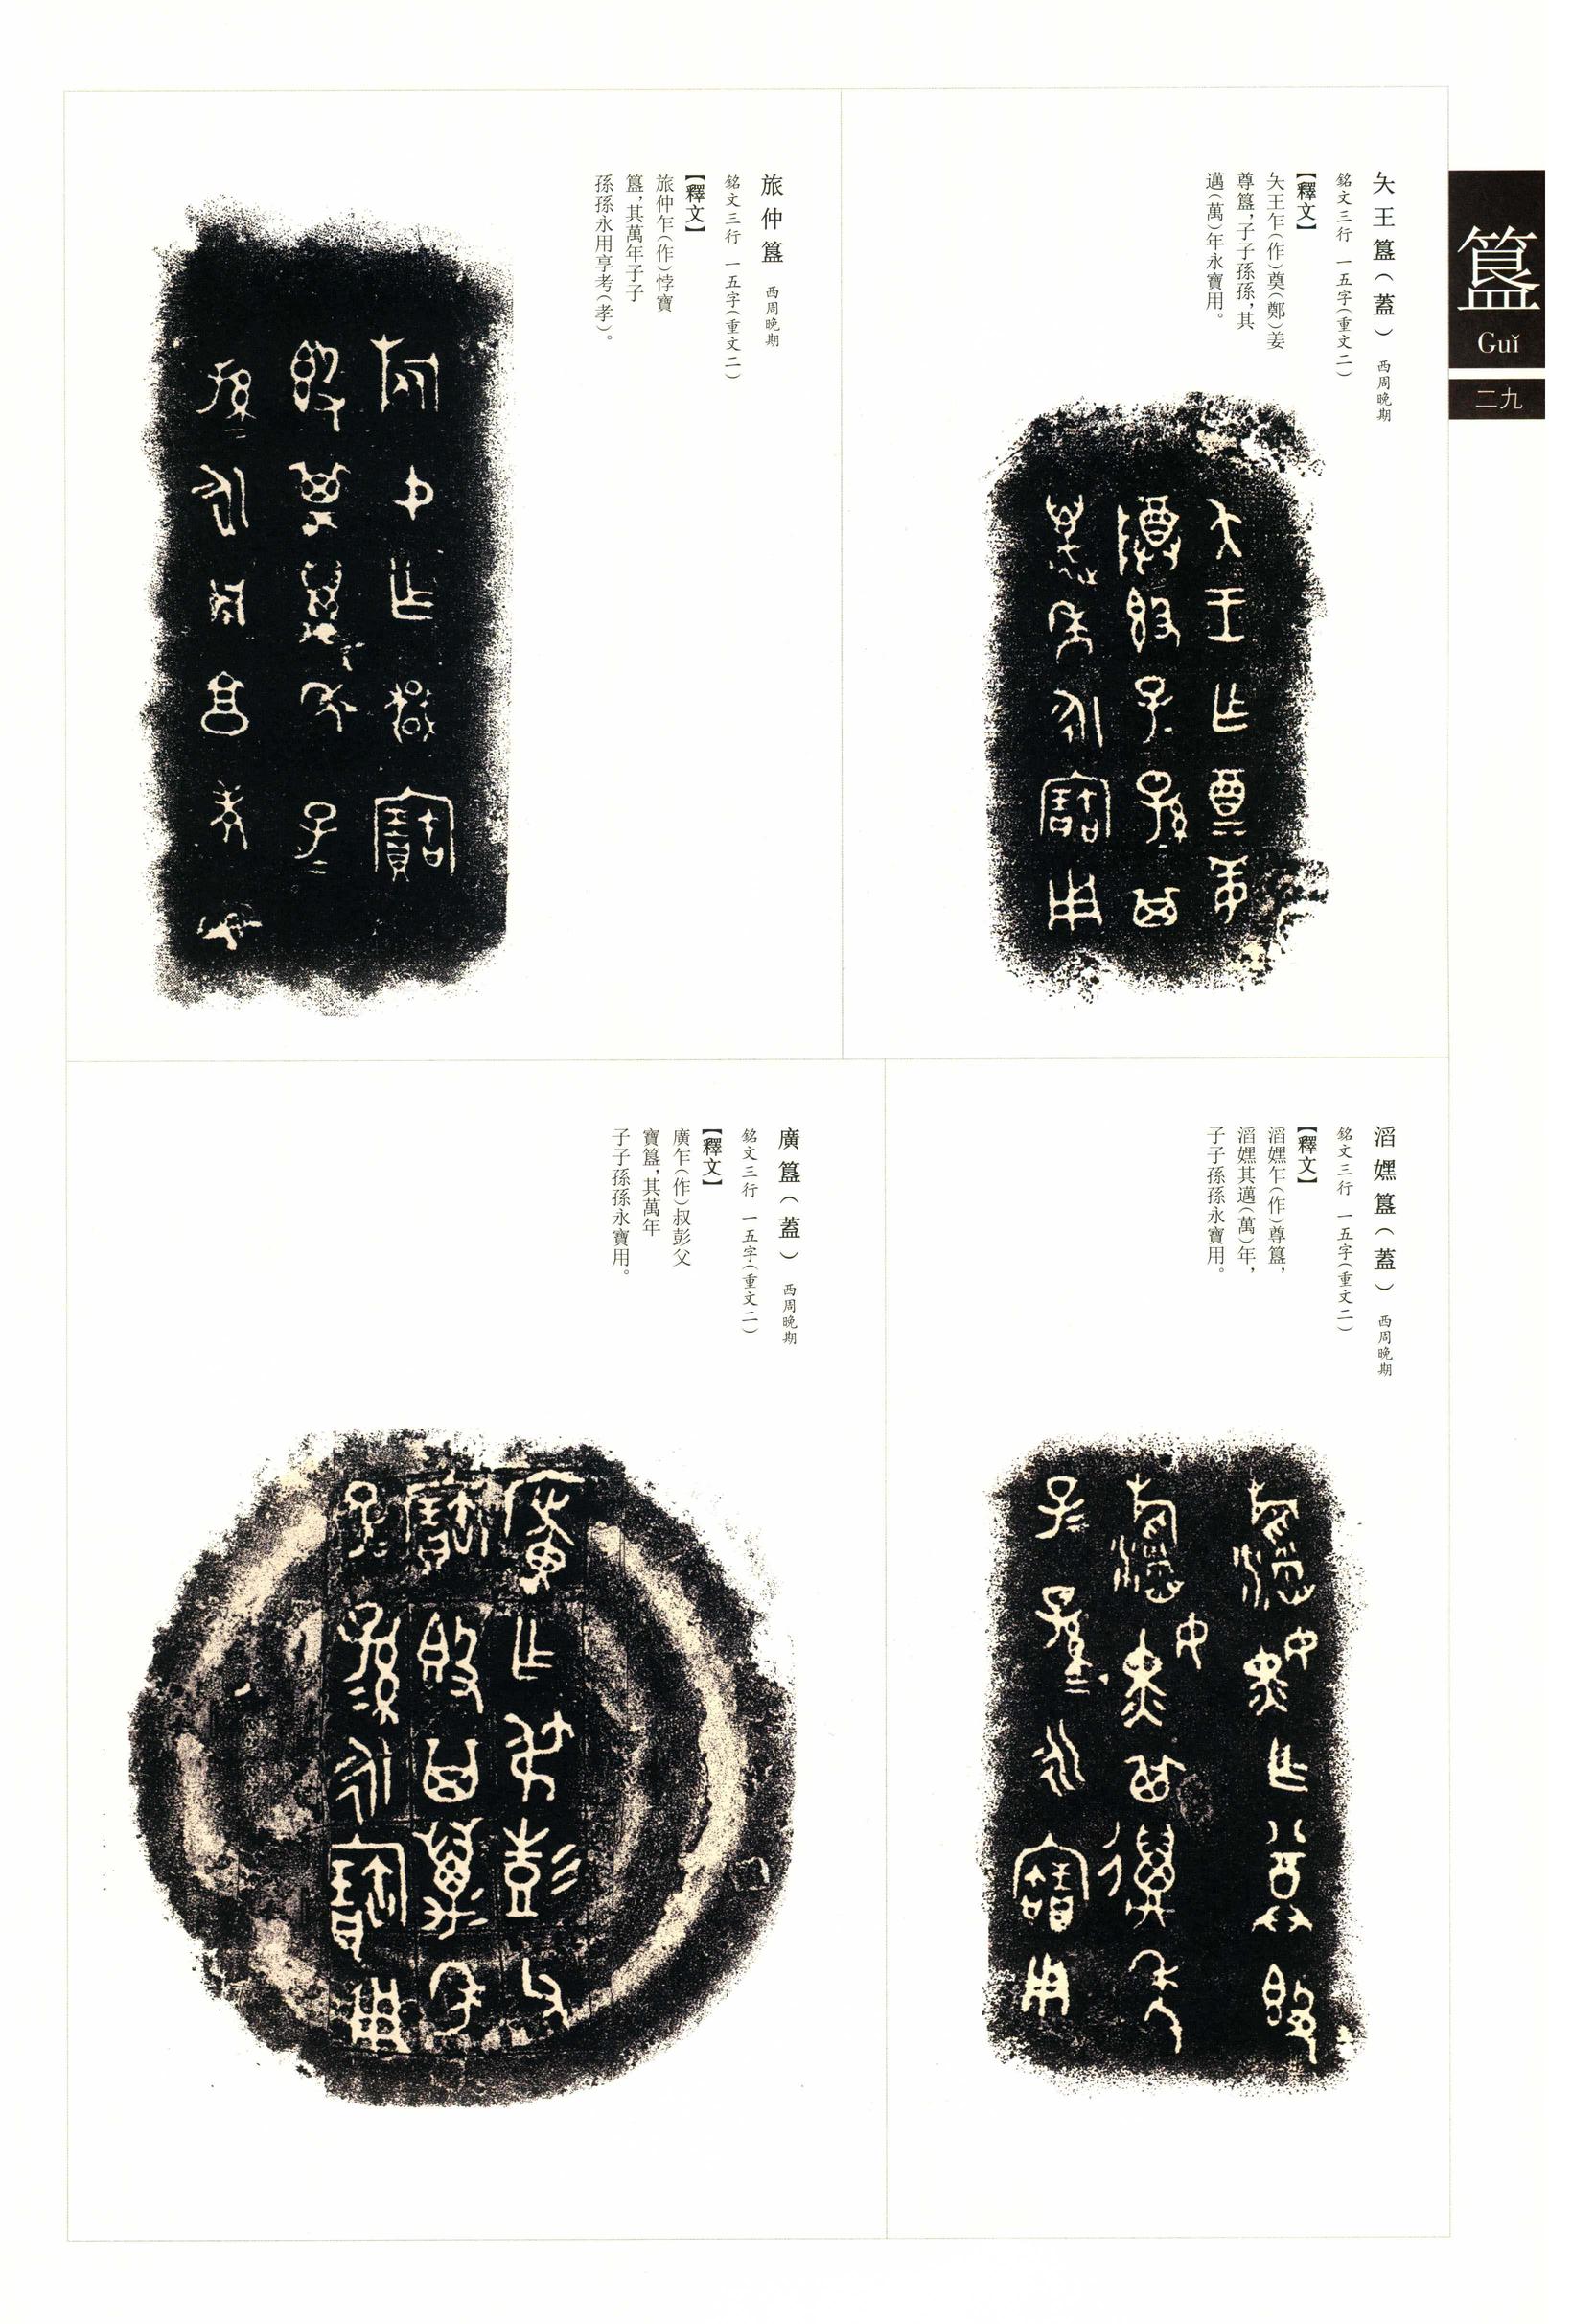 簋
Guǐ
二九
夨王簋（蓋） 西周晚期
銘文三行 一五字（重文二）
【釋文】
夨王乍（作）奠（鄭）姜
尊簋，子子孫孫，其
邁（萬）年永寶用。
旅仲簋 西周晚期
銘文三行 一五字（重文二）
【釋文】
旅仲乍（作）㝬寶
簋，其萬年子子
孫孫永用享考（孝）。
滔嫼簋（蓋） 西周晚期
銘文三行 一五字（重文二）
【釋文】
滔嫼乍（作）尊簋，
滔嫼其邁（萬）年，
子子孫孫永寶用。
廣簋（蓋） 西周晚期
銘文三行 一五字（重文二）
【釋文】
廣乍（作）叔彭父
寶簋，其萬年
子子孫孫永寶用。